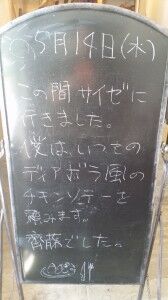 5月14日(木)
この間サイゼに
行きました。
僕は、いつもの
ディアボラ風の
チキンソテーを
頼みます。
齊藤でした。